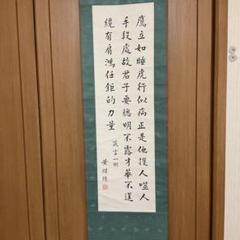 鷹立如睡虎行似病正是他攫人噬人
手段處故君子要聰明不露才華不逞
纔有肩鴻任鉅的力量